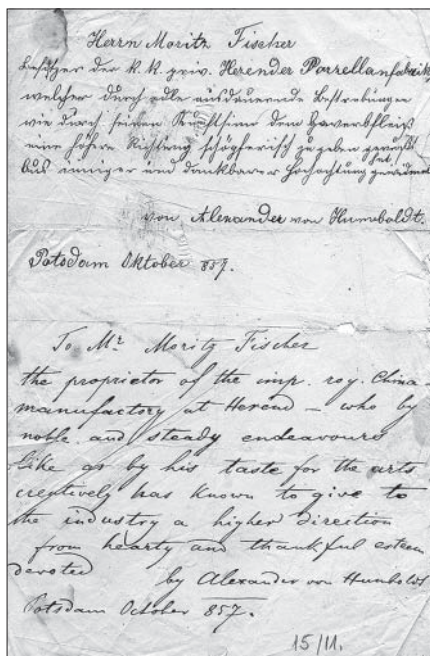 Herrn Moritz Fischer
Besitzer der k. k. priv. Herender Porzellanfabrik,
welcher durch edle ausdauernde Bestrebungen
wie durch seinen Kunstsinn dem Gewerbfleiß
eine höhere Richtung schöpferisch zu geben gewußt
hat,
Aus inniger und dankbarer Hochachtung gewidmet
von Alexander von Humboldt.
Potsdam Oktober 857.
To Mr Moritz Fischer
the proprietor of the imp. roy. China-
manufactory at Herend – who by
noble and steady endeavours
like as by his taste for the arts
creatively has known to give to
the industry a higher direction
from hearty and thankful esteem
devoted
by Alexander von Humboldt
Potsdam October 857.
15/11.